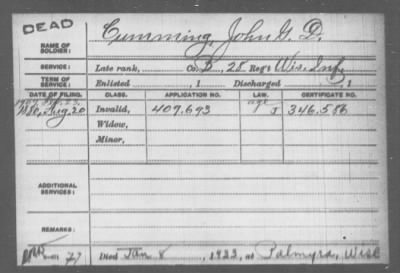 DEAD
NAME OF SOLDIER: Cumming, John G. D.
SERVICE: Late rank, Co. B, 28 Reg't Wis. Inf.
TERM OF SERVICE: Enlisted , 1 Discharged , 1
DATE OF FILING. CLASS. APPLICATION NO. LAW. CERTIFICATE NO.
1880, Aug. 20 Invalid, 409.693 age J 346.586
Widow,
Minor,
ADDITIONAL SERVICES:
REMARKS:
Died Jan 8, 1923, at Palmyra, Wisc